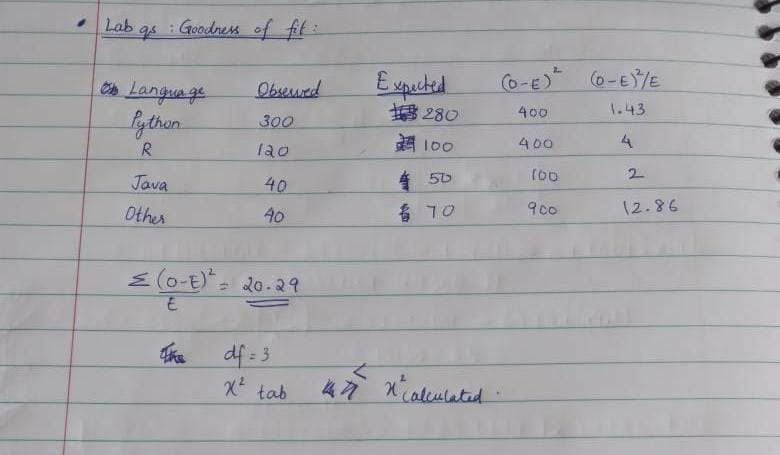 • Lab qs : Goodness of fit :
Language Observed Expected (O-E)² (O-E)²/E
Python 300 280 400 1.43
R 120 100 400 4
Java 40 50 100 2
Other 40 70 900 12.86
Σ (O-E)²/E = 20.29
df = 3
χ² tab < χ² calculated.